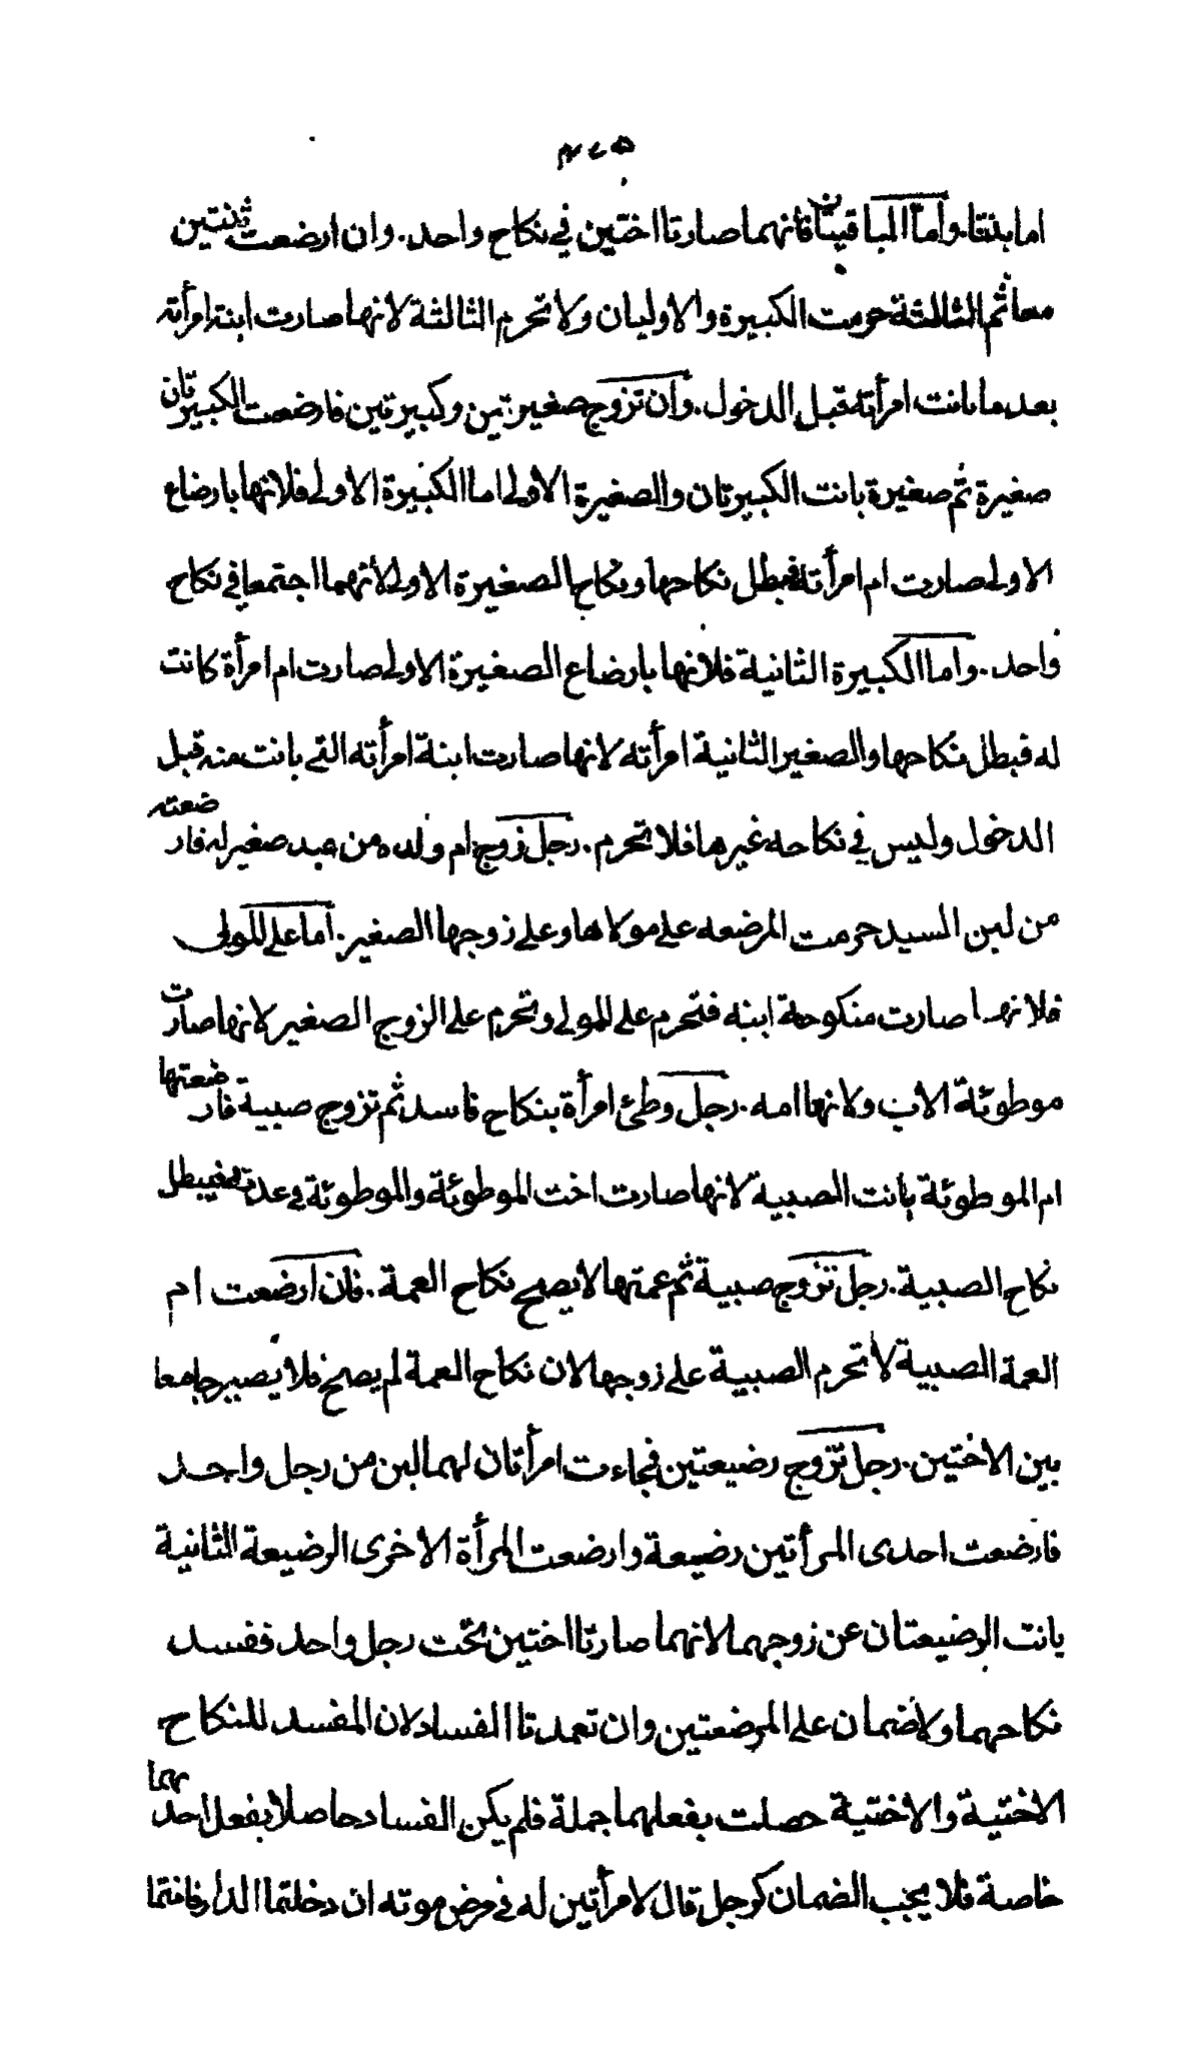 اما بنتا. واما الباقيتان فأنهما صارتا اختين في نكاح واحد. وان ارضعت ثنتين
معا ثم الثالثة حرمت الكبيرة والاوليان ولا تحرم الثالثة لانها صارت ابنة امرأته
بعد ما بانت امرأته قبل الدخول. وان تزوج صغيرتين وكبيرتين فارضعت الكبيرتان
صغيرة ثم صغيرة بانت الكبيرتان والصغيرة الأولى اما الكبيرة الاولى فلانها بارضاع
الاولى صارت ام امرأته فبطل نكاحها ونكاح الصغيرة الاولى لأنهما اجتمعا في نكاح
واحد. واما الكبيرة الثانية فلانها بارضاع الصغيرة الاولى صارت ام امرأة كانت
له فبطل نكاحها والصغير الثانية امرأته لانها صارت ابنة امرأته التى بانت منه قبل
الدخول وليس في نكاحه غيرها فلا تحرم. رجل زوج ام ولده من عبد صغير له فارضعته
من لبن السيد حرمت المرضعه على مولاها وعلى زوجها الصغير. أما على المولى
فلانها صارت منكوحة ابنه فتحرم على المولى وتحرم على الزوج الصغير لانها صارت
موطوئة الاب ولانها امه. رجل وطئ امرأة بنكاح فاسد ثم تزوج صبية فارضعتها
ام الموطوئة بانت الصبية لانها صارت اخت الموطوئة والموطوئة في عدته فيبطل
نكاح الصبية. رجل تزوج صبية ثم عمتها لا يصح نكاح العمة. فان ارضعت ام
العمة الصبية لا تحرم الصبية على زوجها لان نكاح العمة لم يصح فلا يصير جامعا
بين الاختين. رجل تزوج رضيعتين فجاءت امرأتان لهما لبن من رجل واحد
فارضعت احدى المرأتين رضيعة وارضعت المرأة الاخرى الرضيعة الثانية
بانت الرضيعتان عن زوجهما لانهما صارتا اختين تحت رجل واحد ففسد
نكاحهما ولا ضمان على المرضعتين وان تعمدتا الفساد لان المفسد للنكاح
الاختية والاختية حصلت بفعلهما جملة فلم يكن الفساد حاصلا بفعل احدهما
خاصة فلا يجب الضمان كرجل قال لامرأتين له في مرض موته ان دخلتما الدار فانتما